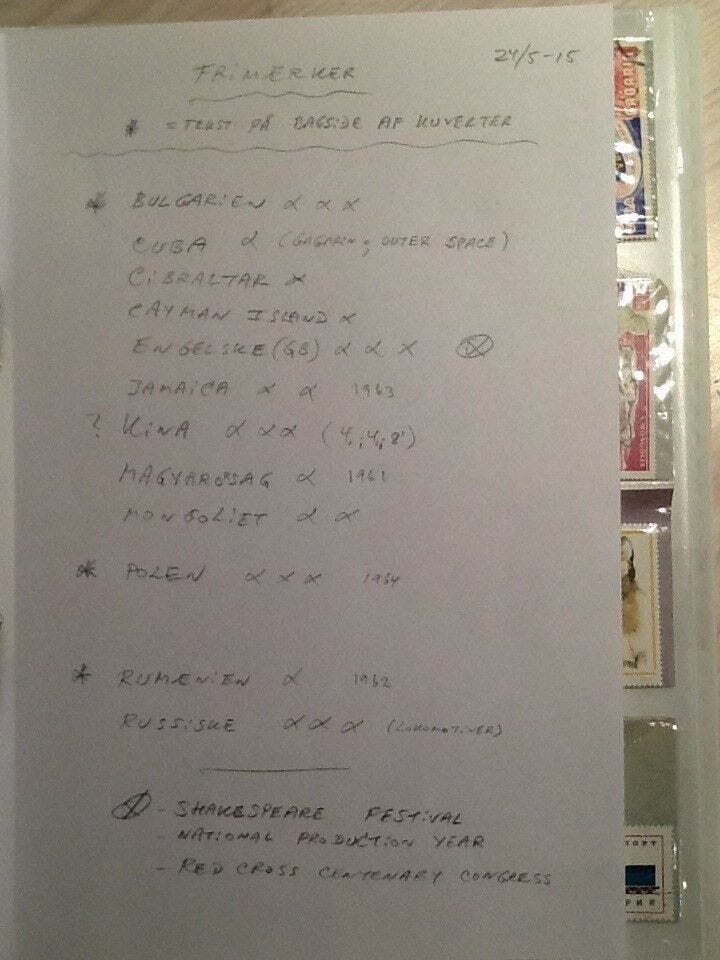 24/5-15
FRIMÆRKER
* = TEKST PÅ BAGSIDE AF KUVERTER
* BULGARIEN α α α
CUBA α (GAGARIN ; OUTER SPACE)
GIBRALTAR α
CAYMAN ISLAND α
ENGELSKE (GB) α α α ⊗
JAMAICA α α 1963
? KINA α α α (4,;4,;8')
MAGYARORSAG α 1961
MONGOLIET α α
* POLEN α α α 1964
* RUMENIEN α 1962
RUSSISKE α α α (LOKOMOTIVER)
⊗ - SHAKESPEARE FESTIVAL
- NATIONAL PRODUCTION YEAR
- RED CROSS CENTENARY CONGRESS